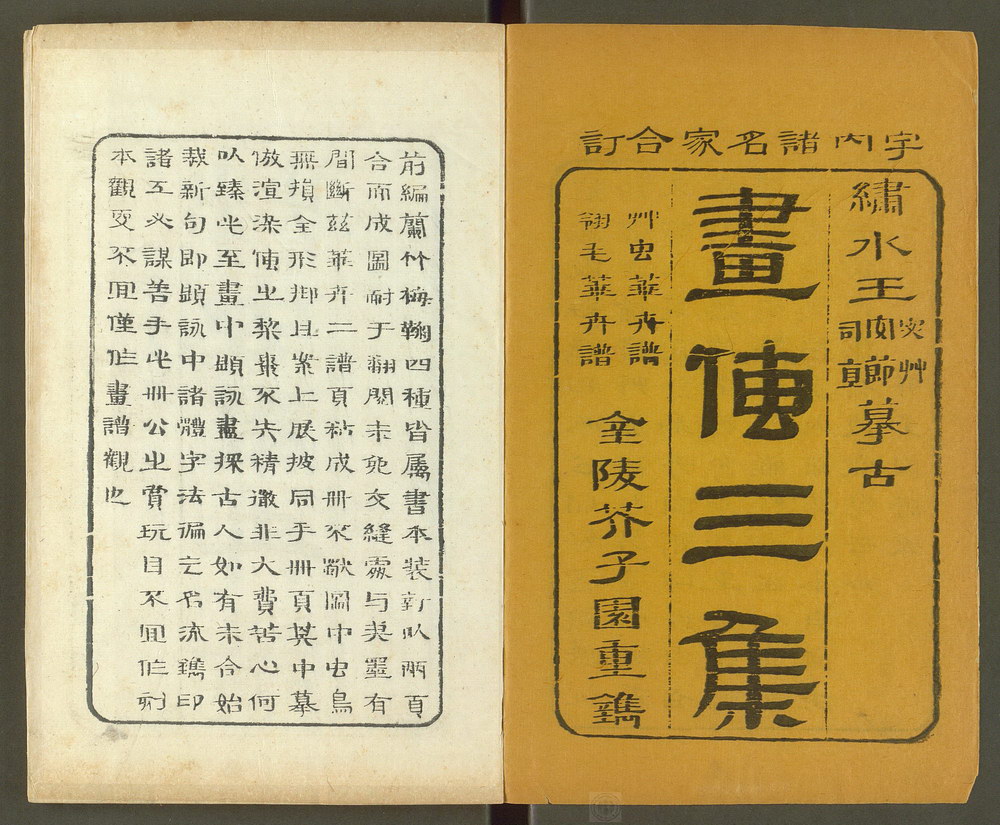 宇内諸名家合訂
繡水王宓艸安節司直摹古
畫傳三集
艸虫華卉譜
翎毛華卉譜
金陵芥子園重鐫
前編蘭竹梅鞠四種皆属書本装訂以兩頁
合而成圖耐于翻閱未免交縫處与夾墨有
間斷兹華卉二譜頁粘成册不獨圖中虫鳥
無損全形抑且案上展披同乎册頁其中摹
倣渲染傳之棃棗不失精微非大費苦心何
以臻此至畫中題詠盡採古人如有未合始
裁新句即題詠中諸體字法徧乞名流鐫印
諸工必謀善手此册公之賞玩目不宜作刻
本觀更不宜僅作畫譜觀也